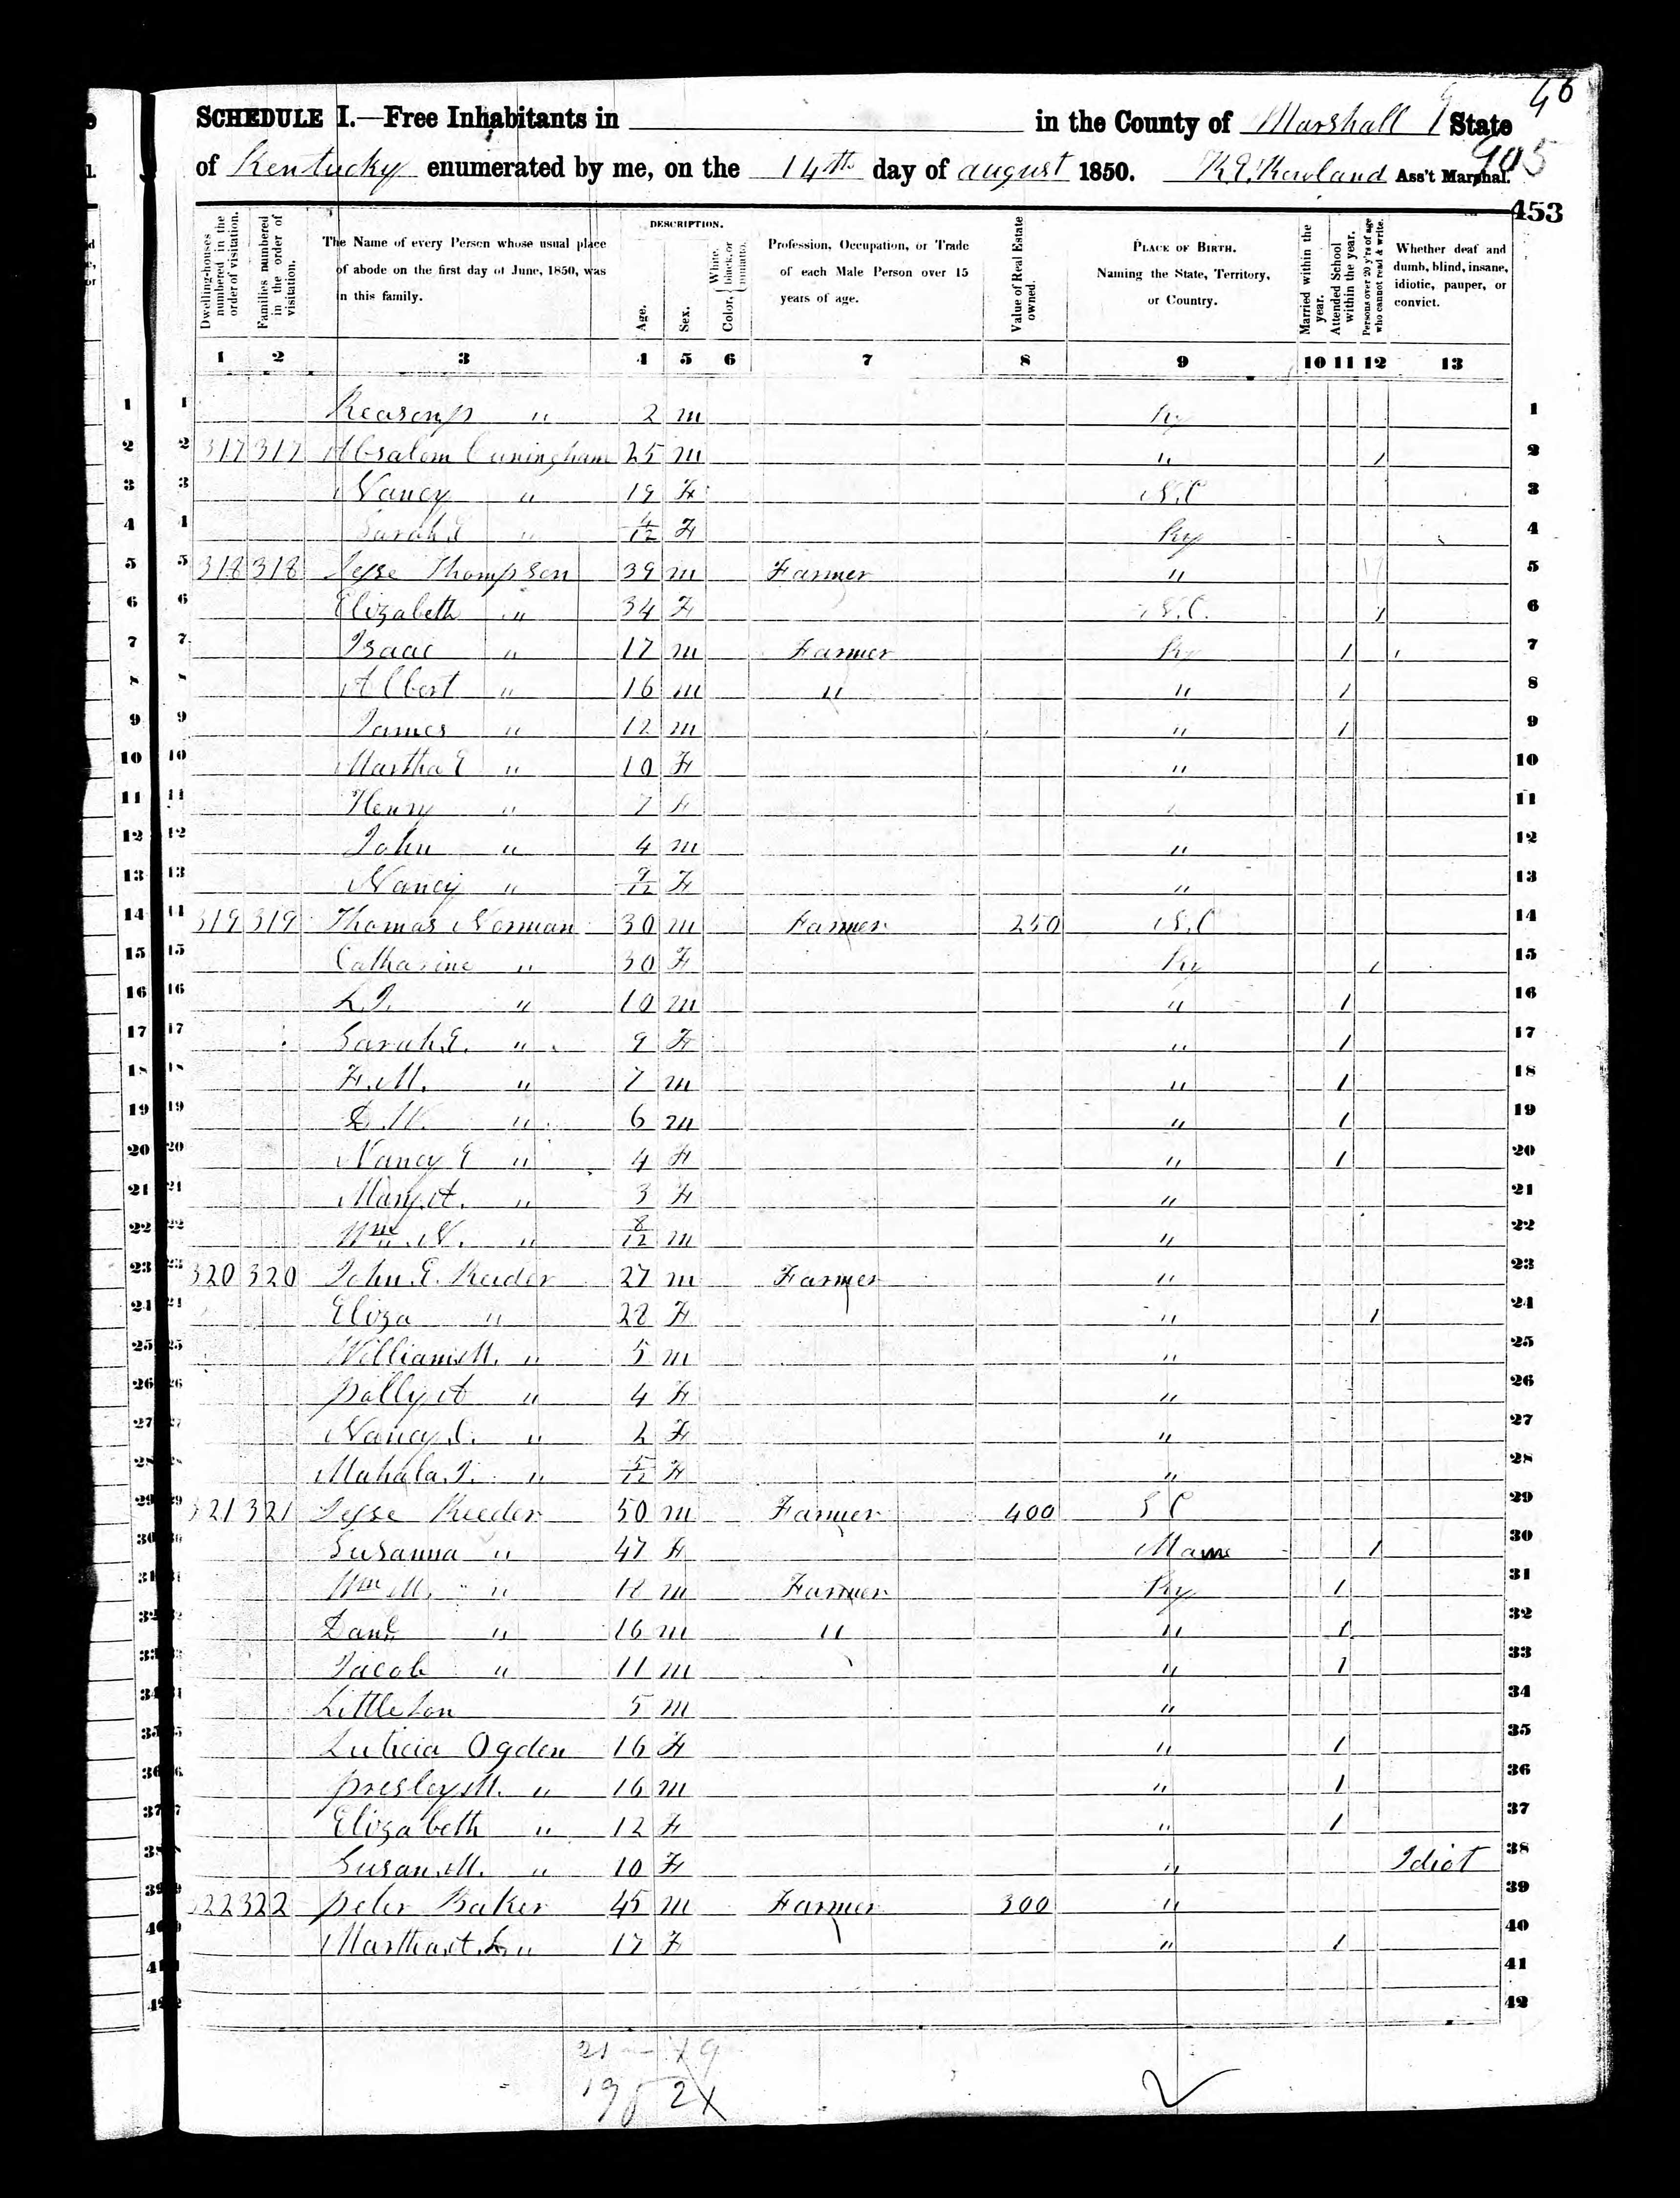 46
SCHEDULE I.—Free Inhabitants in in the County of Marshall State
905
of Kentucky enumerated by me, on the 14th day of august 1850. Ass't Marshal.
453
Dwelling-houses numbered in the order of visitation.
Families numbered in the order of visitation.
The Name of every Person whose usual place of abode on the first day of June, 1850, was in this family.
DESCRIPTION.
Age.
Sex.
Color, { White, black, or mulatto.
Profession, Occupation, or Trade of each Male Person over 15 years of age.
Value of Real Estate owned.
PLACE OF BIRTH. Naming the State, Territory, or Country.
Married within the year.
Attended School within the year.
Persons over 20 y'rs of age who cannot read & write.
Whether deaf and dumb, blind, insane, idiotic, pauper, or convict.
1 2 3 4 5 6 7 8 9 10 11 12 13
1 " 2 m Ky 1
2 317 317 Absalem Cuningham 25 m " / 2
3 Nancy " 19 F N.C 3
4 Sarah E " 4/12 F Ky 4
5 318 318 Jesse Thompson 39 m Farmer " 5
6 Elizabeth " 34 F N.C. / 6
7 Isaac " 17 m Farmer Ky / 7
8 Albert " 16 m " " / 8
9 James " 12 m " / 9
10 Martha E " 10 F " 10
11 Henry " 7 11
12 John " 4 m " 12
13 Nancy " 9/12 F " 13
14 319 319 Thomas Norman 30 m Farmer 250 N.C 14
15 Catharine " 30 F Ky / 15
16 L.J. " 10 m " / 16
17 Sarah E. " 9 F " / 17
18 F.M. " 7 m " / 18
19 " 6 m " / 19
20 Nancy E " 4 F " / 20
21 Mary A. " 3 F " 21
22 Wm N. " 8/12 m " 22
23 320 320 John E. Reeder 27 m Farmer " 23
24 Eliza " 22 F " / 24
25 William M. " 5 m " 25
26 Polly A " 4 F " 26
27 Nancy " 2 F " 27
28 Mahala J. " 5/12 F " 28
29 321 321 Jesse Reeder 50 m Farmer 400 S C 29
30 Susanna " 47 F / 30
31 Wm M. " 18 m Farmer Ky / 31
32 Danl " 16 m " " / 32
33 Jacob " 11 m " / 33
34 Littleton 5 m " 34
35 Luticia Ogden 16 F " / 35
36 Presley M. " 16 m " / 36
37 Elizabeth " 12 F " / 37
38 Susan M. " 10 F " Idiot 38
39 322 322 Peter Baker 45 m Farmer 300 " 39
40 Martha A. L. " 17 F " / 40
41 41
42 42